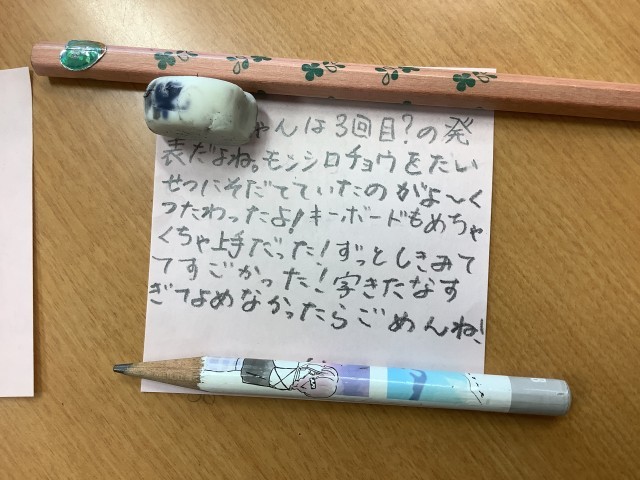 ゃんは3回目?の発
表だよね。モンシロチョウをたい
せつにそだてていたのがよ〜く
つたわったよ!キーボードもめちゃ
くちゃ上手だった!ずっとしきみて
てすごかった!字きたなす
ぎてよめなかったらごめんね!